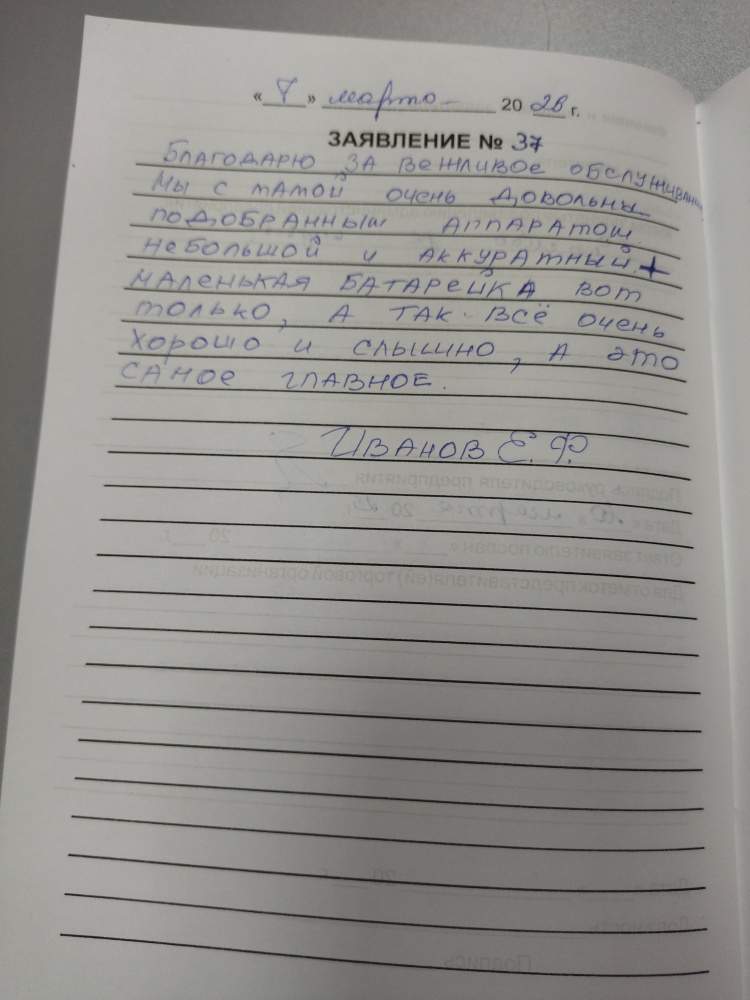 «7» марта 2026 г.
ЗАЯВЛЕНИЕ № 37
БЛАГОДАРЮ ЗА ВЕЖЛИВОЕ ОБСЛУЖИВАНИ
МЫ С МАМОЙ ОЧЕНЬ ДОВОЛЬНЫ
ПОДОБРАННЫМ АППАРАТОМ.
НЕБОЛЬШОЙ И АККУРАТНЫЙ. +
МАЛЕНЬКАЯ БАТАРЕЙКА ВОТ
ТОЛЬКО, А ТАК ВСЁ ОЧЕНЬ
ХОРОШО И СЛЫШНО, А ЭТО
САМОЕ ГЛАВНОЕ.
ИВАНОВ Е. Ф.